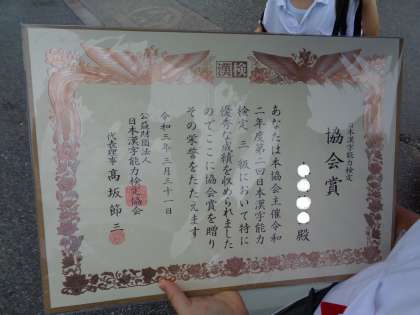 漢検
日本漢字能力検定
協会賞
殿
あなたは本協会主催令和
二年度第二回日本漢字能力
検定 三級において特に
優秀な成績を収められました
のでここに協会賞を贈り
その栄誉をたたえます
令和三年三月三十一日
公益財団法人
日本漢字能力検定協会
代表理事 髙坂節三